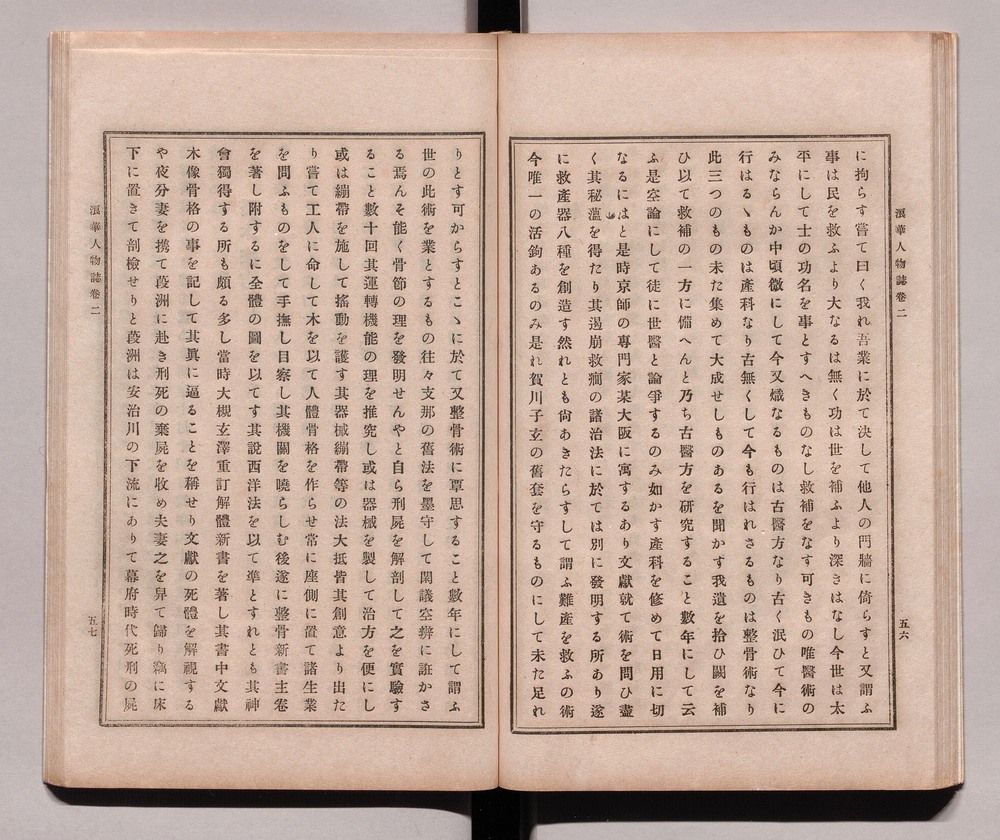 浪華人物誌卷二
五六
に拘らす嘗て曰く我れ吾業に於て決して他人の門牆に倚らすと又謂ふ
事は民を救ふより大なるは無く功は世を補ふより深きはなし今世は太
平にして士の功名を事とすへきものなし救補をなす可きもの唯醫術の
みならんか中頃微にして今又熾なるものは古醫方なり古く泯ひて今に
行はるヽものは產科なり古無くして今も行はれさるものは整骨術なり
此三つのもの未た集めて大成せしものあるを聞かす我遺を拾ひ闕を補
ひ以て救補の一方に備へんと乃ち古醫方を研究すること數年にして云
ふ是空論にして徒に世醫と論爭するのみ如かす產科を修めて日用に切
なるにはと是時京師の專門家某大阪に寓するあり文獻就て術を問ひ盡
く其秘薀を得たり其遏崩救癇の諸治法に於ては別に發明する所あり遂
に救產器八種を創造す然れとも尙あきたらすして謂ふ難產を救ふの術
今唯一の活鉤あるのみ是れ賀川子玄の舊套を守るものにして未た足れ
りとす可からすとこヽに於て又整骨術に覃思すること數年にして謂ふ
世の此術を業とするもの往々支那の舊法を墨守して閑議空辨に誑かさ
る焉んそ能く骨節の理を發明せんやと自ら刑屍を解剖して之を實驗す
ること數十回其運轉機能の理を推究し或は器械を製して治方を便にし
或は繃帶を施して搖動を護す其器械繃帶等の法大抵皆其創意より出た
り嘗て工人に命して木を以て人體骨格を作らせ常に座側に置て諸生業
を問ふものをして手撫し目察し其機關を曉らしむ後遂に整骨新書三卷
を著し附するに全體の圖を以てす其說西洋法を以て準とすれとも其神
會獨得する所も頗る多し當時大槻玄澤重訂解體新書を著し其書中文獻
木像骨格の事を記して其眞に逼ることを稱せり文獻の死體を解視する
や夜分妻を携て葭洲に赴き刑死の棄屍を收め夫妻之を舁て歸り竊に床
下に置きて剖檢せりと葭洲は安治川の下流にありて幕府時代死刑の屍
浪華人物誌卷二
五七